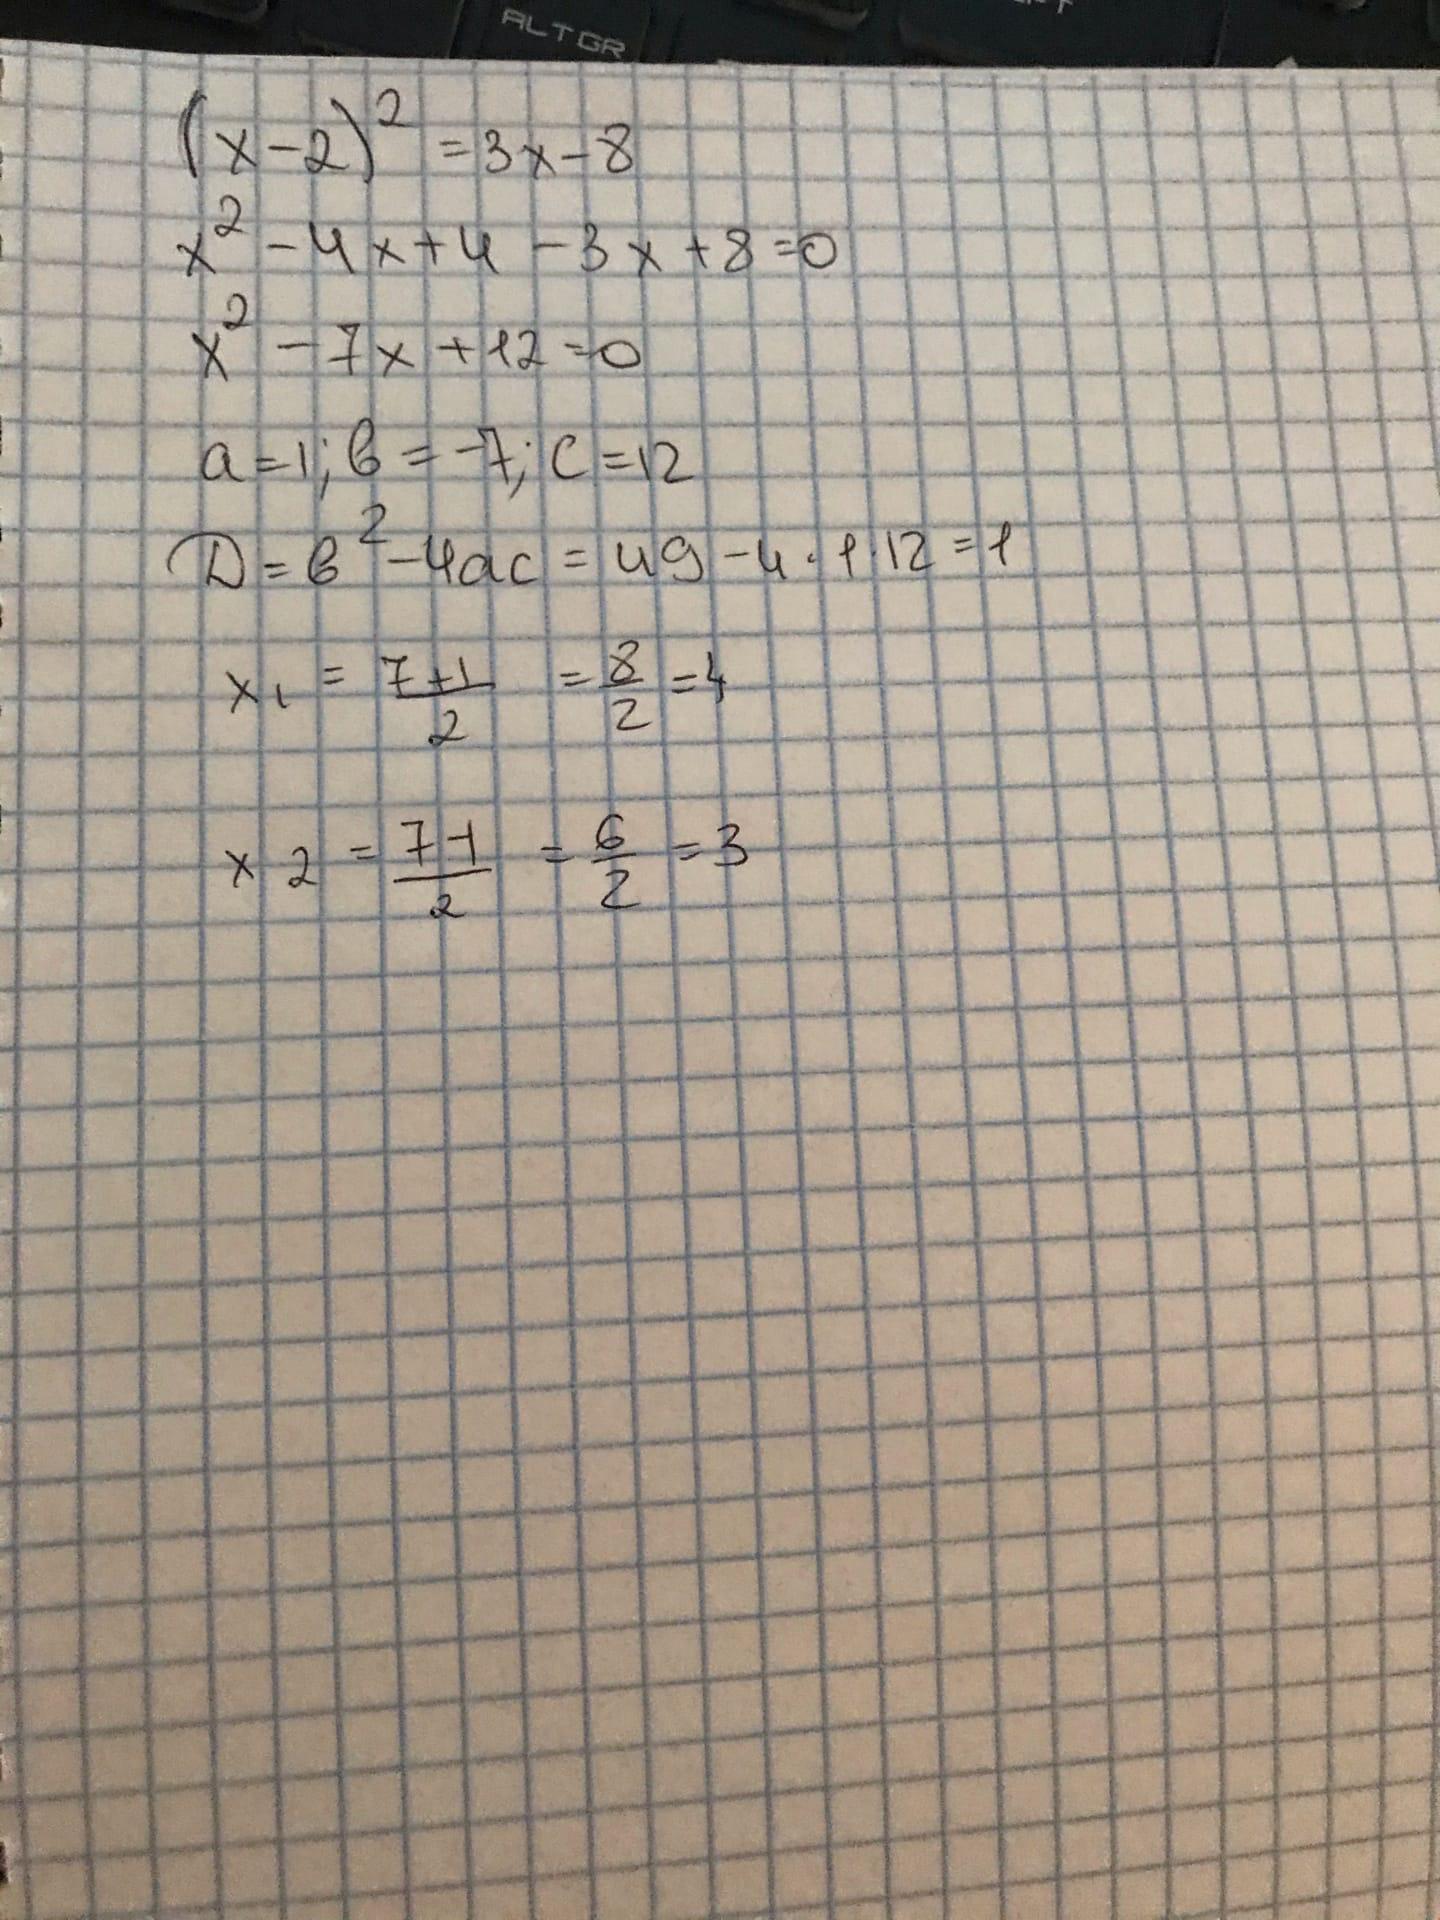 ALT GR
(x-2)² = 3x-8
x² - 4x + 4 - 3x + 8 = 0
x² - 7x + 12 = 0
a=1; b=-7; c=12
D = b² - 4ac = 49 - 4 · 1 · 12 = 1
x₁ = \frac{7+1}{2} = \frac{8}{2} = 4
x2 = \frac{7-1}{2} = \frac{6}{2} = 3